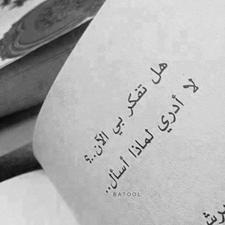 هل تفكر بي الآن..؟
لا أدري لماذا أسأل..
BATOOL